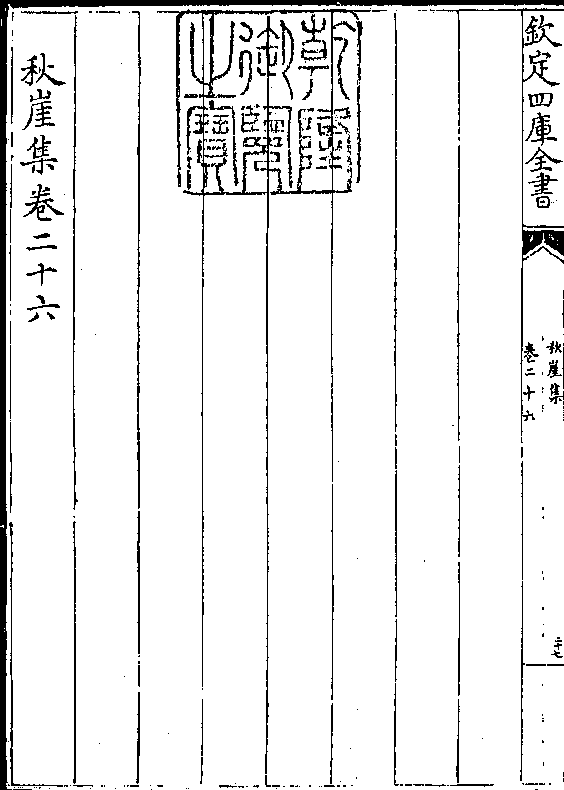 欽定四庫全書
秋崖集
卷二十六
二十七
乾隆
御覽
之寶
秋崖集卷二十六